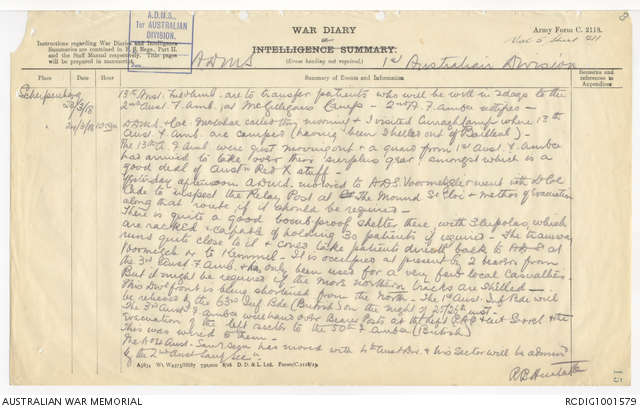 A.D.M.S.,
1st AUSTRALIAN
DIVISION.
WAR DIARY
or
INTELLIGENCE SUMMARY.
(Erase heading not required.)
Army Form C. 2118.
Instructions regarding War Diaries and Intelligence
Summaries are contained in F. S. Regs., Part II.
and the Staff Manual respectively. Title pages
will be prepared in manuscript.
ADMS 1st Australian Division
Place Date Hour Summary of Events and Information Remarks and references to Appendices
Scherpenberg 23/3/18 13th Aust. Fld Amb. are to transfer patients who will be well in 2 days to the
2nd Aust F. Amb. at McGilligans Camp - 2nd A. F. Ambce notified -
24/3/18 DDMS called this morning & I visited Curragh Camp where 13th
Aust. F. Amb. are camped (having been shelled out of ) -
The 13th F Aust were just moving out & a guard from 1st Aust F. Ambce
has arrived to take over their surplus gear amongst which is a
good deal of Austn Red X stuff -
Yesterday afternoon ADMS motored to A.D.S. Voormezeele & went with Lt Col
to inspect the Relay Post at The Mound St Eloi & method of Evacuation
along that route if it should be required -
There is quite a good bomb proof shelter there with 3 cupolas, which
are racked & capable of holding 30 patients if required. The tramway
runs quite close to it & could take patients direct back to ADS at
Voormezeele or to Kemmel - It is occupied at present by 2 bearers from
the 3rd Aust F. Amb. & has only been used for a very few local casualties -
But it might be required if the more northern tracks are shelled -
This Div front is being shortened from the north - The 1st Aust. Inf Bde will
be relieved by the 63rd Inf Bde (British) on the night of 25/26th inst -
The 3rd Aust F Ambce will hand over Bearer Posts at the left
Evacuation of the left sector to the 50th F Ambce (British)
This was wired to them -
The No 4 Aust. Sanit Secn has moved with 4th Aust Div. & his sector will be admin
by the 2nd Aust Santy Secn
15
AUSTRALIAN WAR MEMORIAL
RCDIG1001579